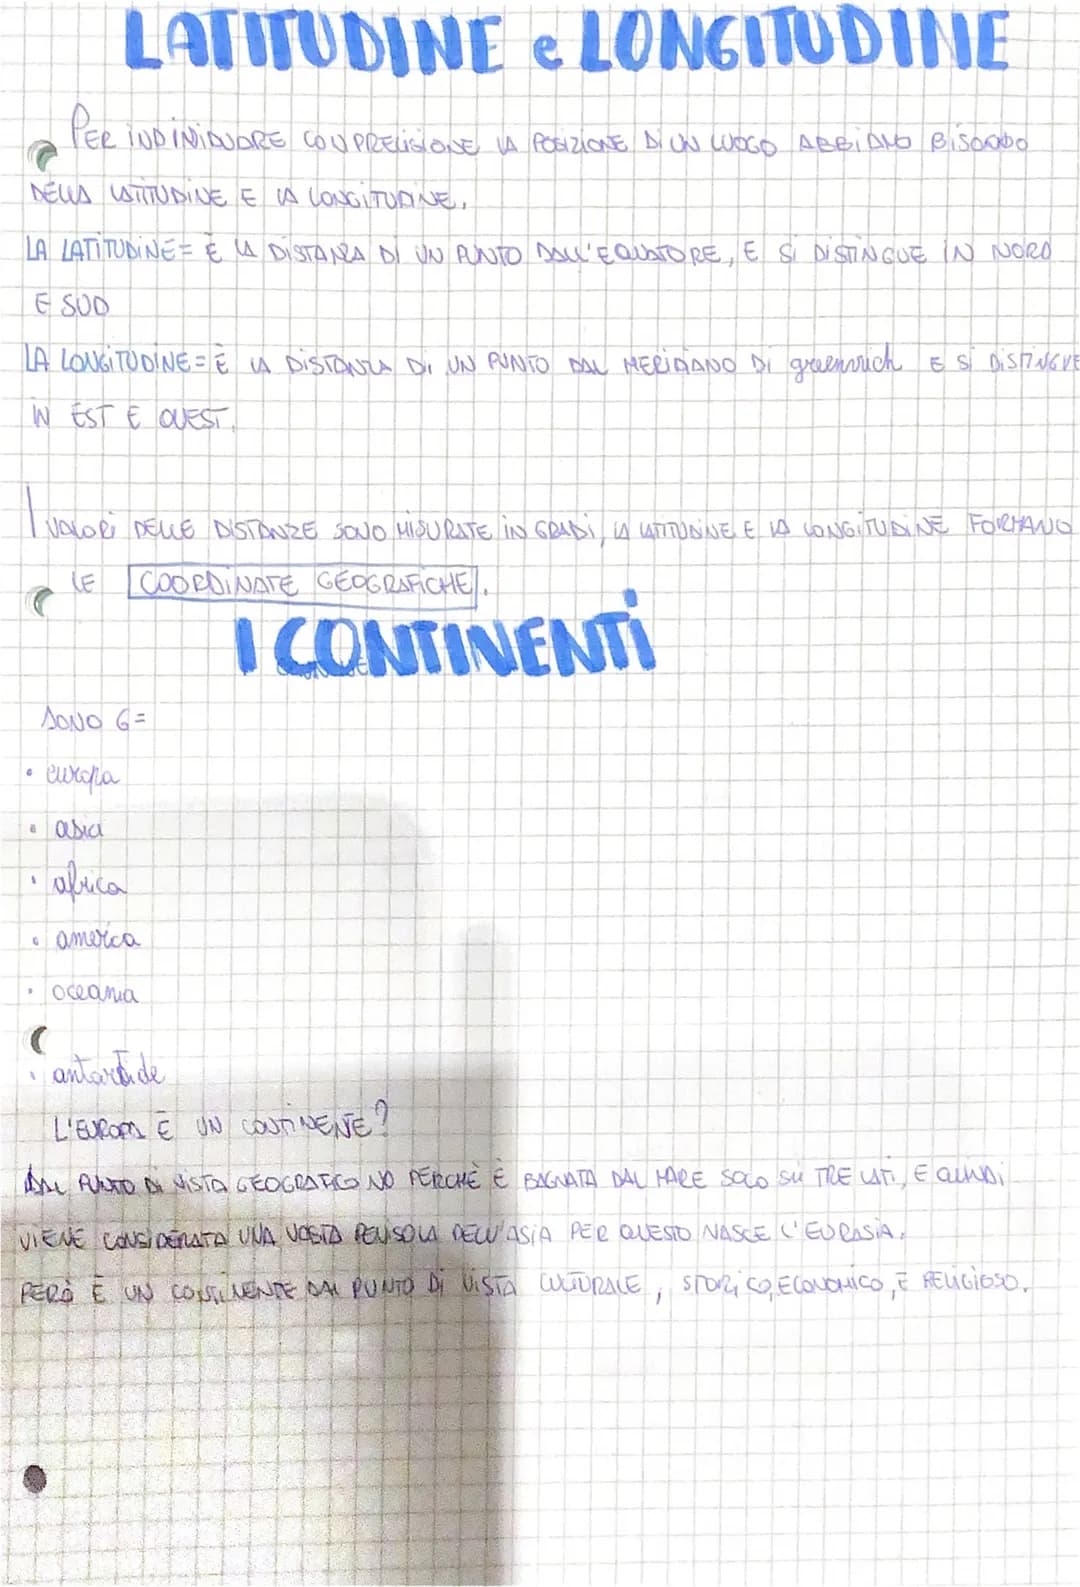 LATITUDINE e LONGITUDINE
PER INDINIDUORE CON PRECISIONE LA POSIZIONE DI UN LUOGO ABBIAMO BISOGNO
DELLA LATITUDINE E LA LONGITUDINE.
LA LATITUDINE= È LA DISTANZA DI UN PUNTO DALL'EQUATORE, E SI DISTINGUE IN NORD
E SUD
LA LONGITUDINE= È LA DISTANZA DI UN PUNTO DAL MERIDIANO DI greenwich E SI DISTINGUE
IN EST E OVEST.
I VALORI DELLE DISTANZE SONO MISURATE IN GRADI, LA LATITUDINE E LA LONGITUDINE FORMANO
LE COORDINATE GEOGRAFICHE.
I CONTINENTI
SONO 6=
• europa
• asia
• africa
• america
• oceania
• antartide
L'EUROPA È UN CONTINENTE?
DAL PUNTO DI VISTA GEOGRAFICO NO PERCHÈ È BAGNATA DAL MARE SOLO SU TRE LATI, E QUINDI
VIENE CONSIDERATA UNA VASTA PENISOLA DELL'ASIA PER QUESTO NASCE L'EURASIA.
PERÒ È UN CONTINENTE DAL PUNTO DI VISTA CULTURALE, STORICO, ECONOMICO, E RELIGIOSO.